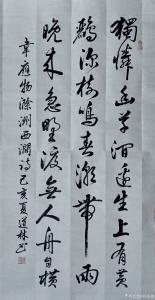 獨憐幽草澗邊生上有黃
鸝深樹鳴春潮帶雨
晚來急野渡無人舟自橫
韋應物滁洲西澗詩己亥夏道林書